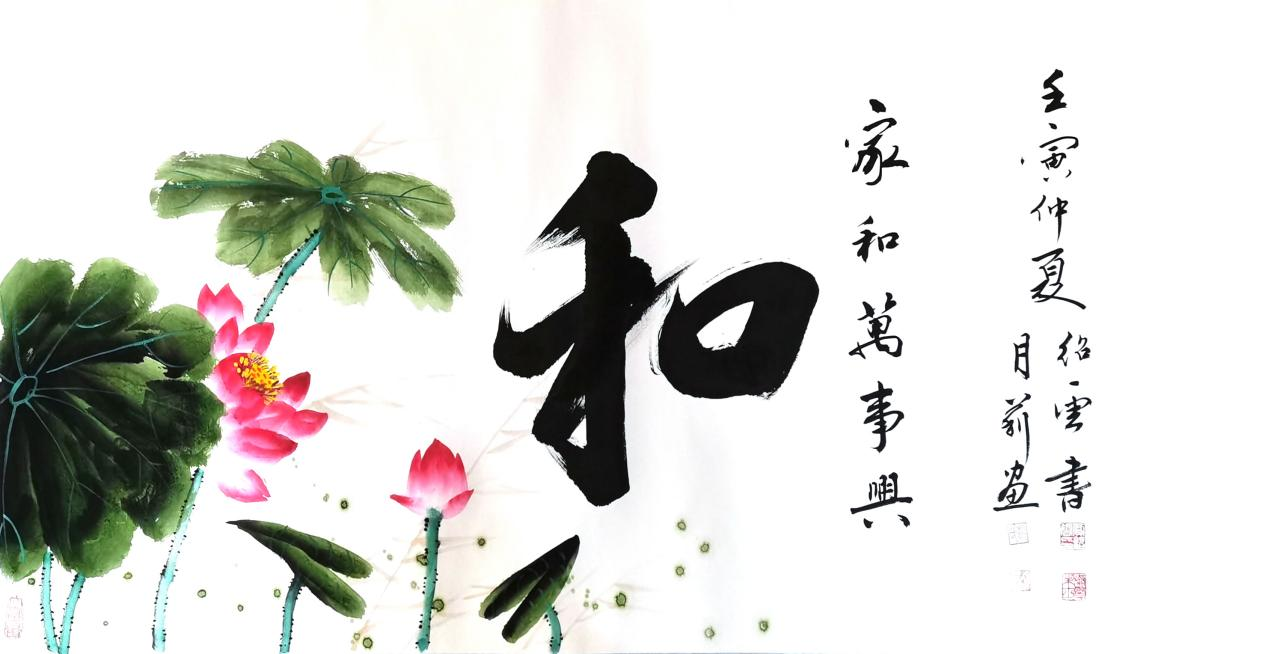 壬寅仲夏
绍雲書
月莉畫
家和萬事興
和